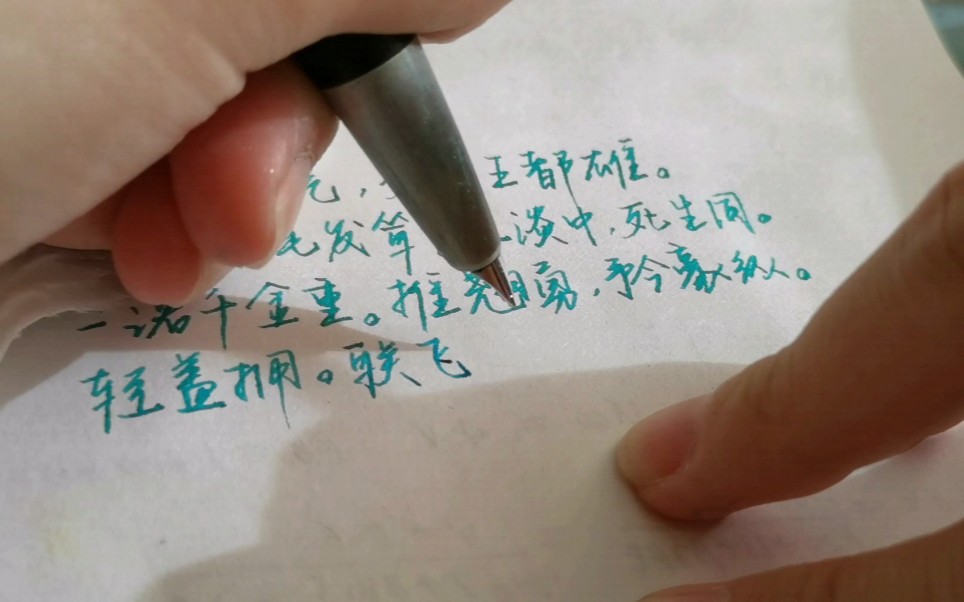 气,五都雄。
毛发耸 谈中,死生同。
一诺千金重。推翘勇,矜豪纵。
轻盖拥。联飞